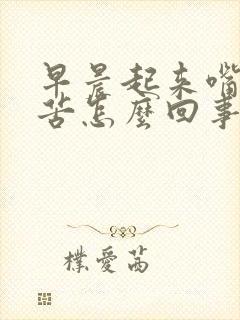 早晨起来嘴
苦怎麽回事
樸愛茜